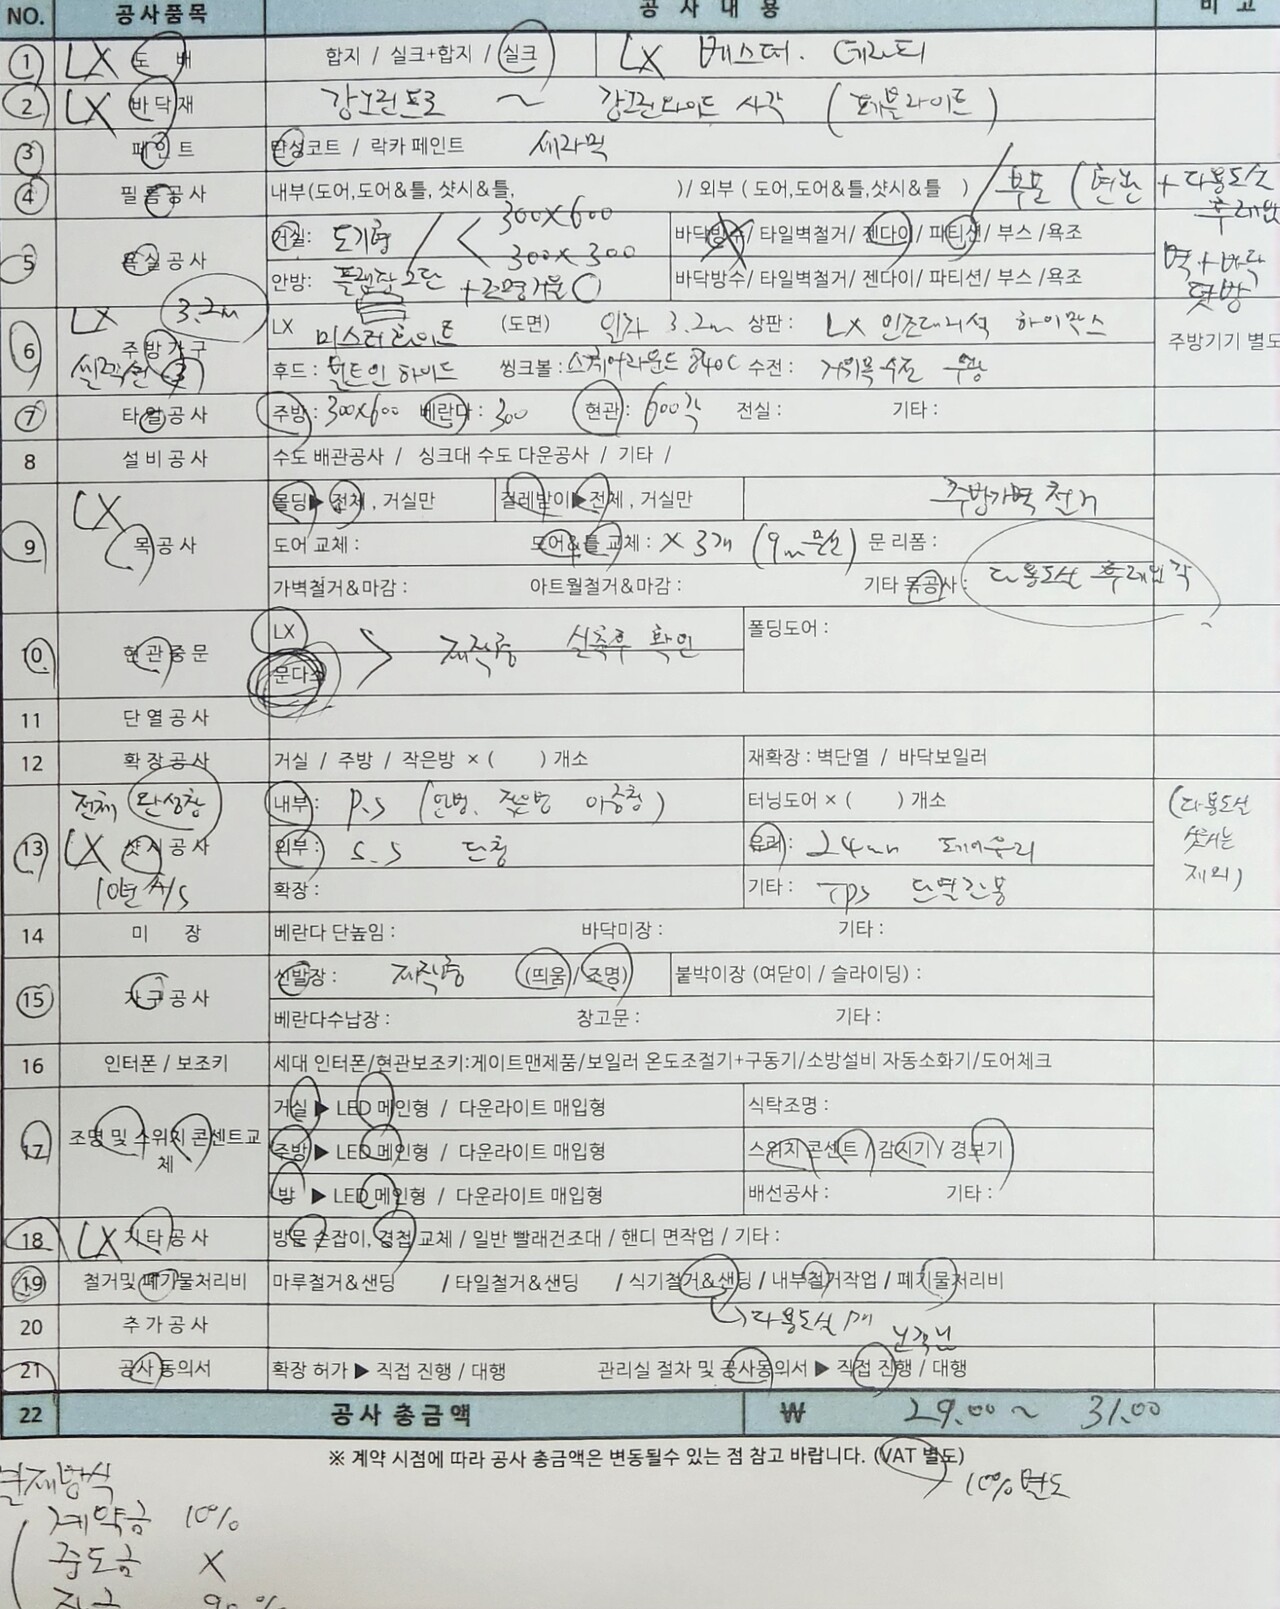 NO. 공사품목 공사내용 비고
① LX 도배 합지 / 실크+합지 / 실크 LX 베스띠. 테라피
② LX 바닥재 강그린프로 ~ 강그린와이드 사각 (페블라이트)
③ 페인트 탄성코트 / 락카 페인트 세라믹
④ 필름공사 내부(도어,도어&틀, 샷시&틀, )/ 외부 ( 도어,도어&틀,샷시&틀 ) / 부분 (현관 + 다용도실
⑤ 욕실공사 거실: 도기형 / < 300x600 300x300 바닥방수/ 타일벽철거/ 젠다이/ 파티션/ 부스 /욕조
안방: 플랩장 2단 + 조명거울 바닥방수/ 타일벽철거/ 젠다이/ 파티션/ 부스 /욕조 벽+바닥 덧방
⑥ LX 3.2m 주방가구 LX 미스터화이트 (도면) 일자 3.2m 상판 : LX 인조대리석 하이막스 주방기기 별도
후드 : 빌트인 하이드 씽크볼 : 스퀘어라운드 840C 수전 : 거위목수전 무광
⑦ 타일공사 주방 : 300x600 베란다 : 300 현관 : 600각 전실 : 기타 :
8 설비공사 수도 배관공사 / 싱크대 수도 다운공사 / 기타 /
⑨ LX 목공사 몰딩▶ 전체 , 거실만 걸레받이▶전체 , 거실만 주방가벽 철거
도어 교체 : 도어&틀 교체 : x 3개 (9m 문선) 문 리폼 :
가벽철거&마감 : 아트월철거&마감 : 기타 목공사 : 다용도실
⑩ 현관중문 LX 폴딩도어 :
문다스 > 제작중 실측후 확인
11 단열공사
12 확장공사 거실 / 주방 / 작은방 × ( ) 개소 재확장 : 벽단열 / 바닥보일러
⑬ 전체 완성창 내부 : P.S (안방, 작은방 이중창) 터닝도어 × ( ) 개소 (다용도실
LX 샷시공사 외부 : S.S 단창 유리 : 24mm 로이유리 샷시는
10년 A/S 확장 : 기타 : TPS 단열간봉 제외)
14 미장 베란다 단높임 : 바닥미장 : 기타 :
⑮ 가구공사 신발장 : 제작중 (띄움/조명) 붙박이장 (여닫이 / 슬라이딩) :
베란다수납장 : 창고문 : 기타 :
16 인터폰 / 보조키 세대 인터폰/현관보조키:게이트맨제품/보일러 온도조절기+구동기/소방설비 자동소화기/도어체크
17 조명 및 스위치 콘센트교체 거실 ▶ LED 메인형 / 다운라이트 매입형 식탁조명 :
주방▶ LED 메인형 / 다운라이트 매입형 스위치 콘센트 / 감지기/ 경보기
방 ▶ LED 메인형 / 다운라이트 매입형 배선공사 : 기타 :
⑱ LX 기타공사 방문 손잡이, 경첩 교체 / 일반 빨래건조대 / 핸디 면작업 / 기타 :
⑲ 철거및 폐기물처리비 마루철거&샌딩 / 타일철거&샌딩 / 식기철거&샌딩 / 내부철거작업 / 폐기물처리비
20 추가공사 다용도실
21 공사동의서 확장 허가 ▶ 직접 진행 / 대행 관리실 절차 및 공사동의서 ▶ 직접 진행 / 대행
22 공사 총금액 ₩ 29.00 ~ 31.00
※ 계약 시점에 따라 공사 총금액은 변동될수 있는 점 참고 바랍니다. (VAT 별도)
10% 별도
결제방식
계약금 10%
중도금 X
잔금 90%